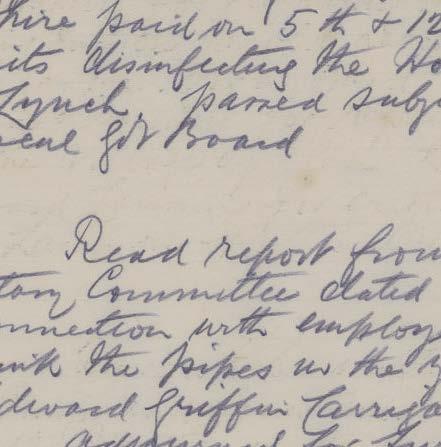 hire paid on 5th & 12
its disinfecting the Ho
Lynch passed subj
ocal Gov Board
Read report from
tary Committee dated
onnection with employ
the pipes in the
dward Griffin Carriga
adjourned for